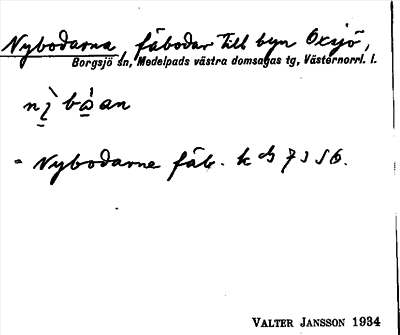 Nybodarna, fäbodar till byn Oxsjö,
Borgsjö sn, Medelpads västra domsagas tg, Västernorrl. l.
nỳ bòan
= Nybodarne fäb. k
VALTER JANSSON 1934